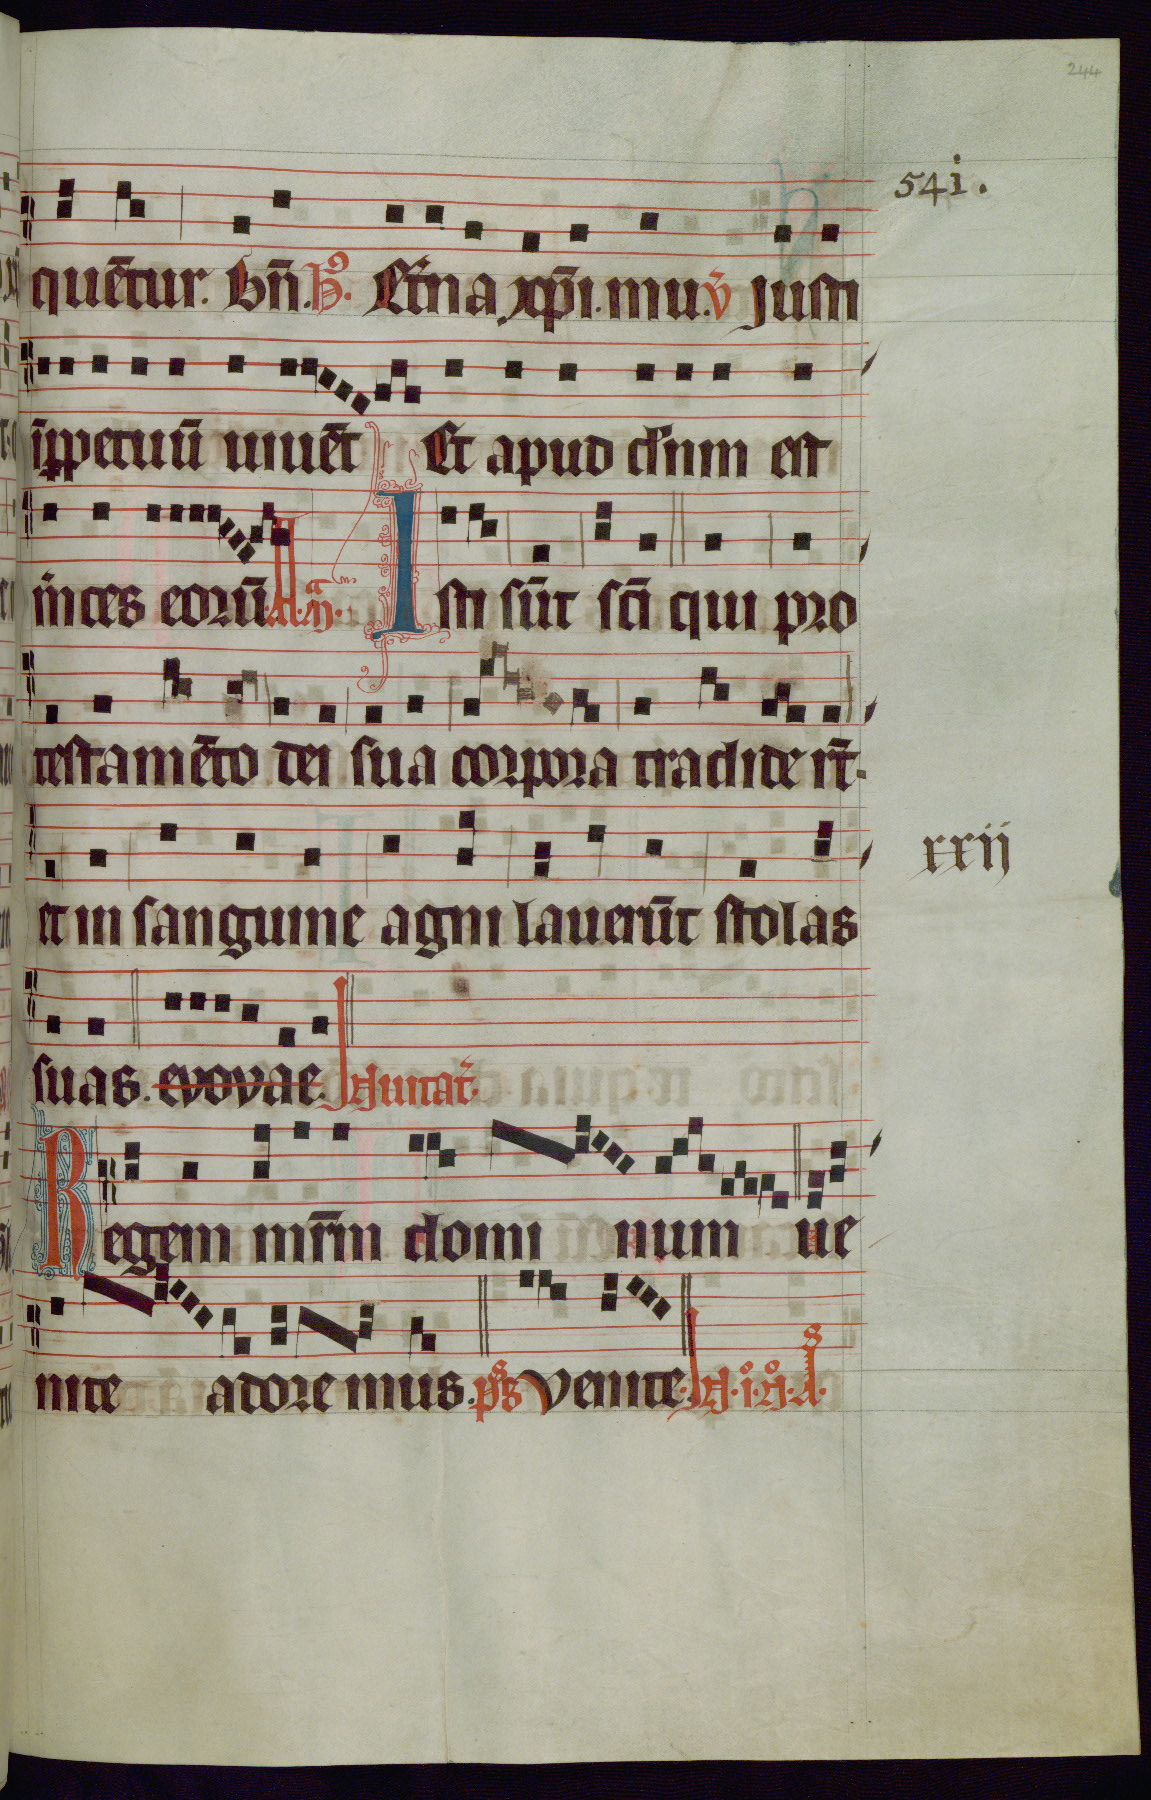 244
541.
quētur. Bñ. Hꝰ. Etñna xp̄i. mu. v̄ Justi
īp̱petuū uiuēt Et apud dn̄m est
m̄ces eorū. A. m̄. Isti sūt sc̄i qui pro
testamēto dei sua corpora tradide rt̄.
xxii
et in sanguine agni lauerūt stolas
suas. evovae. Inuitat̄.
Regem mr̄m domi num ue
nite adoremus. ps̄ Venite.